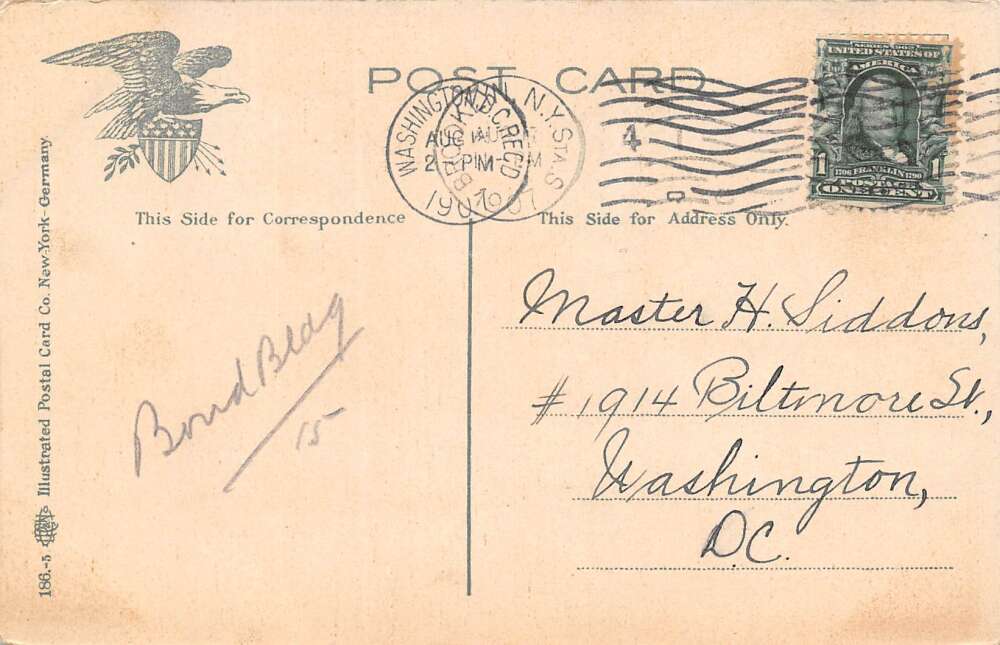 POST CARD
SERIES 1902
UNITED STATES OF
AMERICA
1 1
1706 FRANKLIN 1790
POSTAGE
ONE CENT
WASHINGTON, D.C. REC'D
N.Y. STA. S
AUG
PM
1907
4
This Side for Correspondence
This Side for Address Only.
Master H. Siddons,
#1914 Biltmore St.,
Washington,
D.C.
Bond Bldg
15
186.-5 Illustrated Postal Card Co. New-York- Germany.